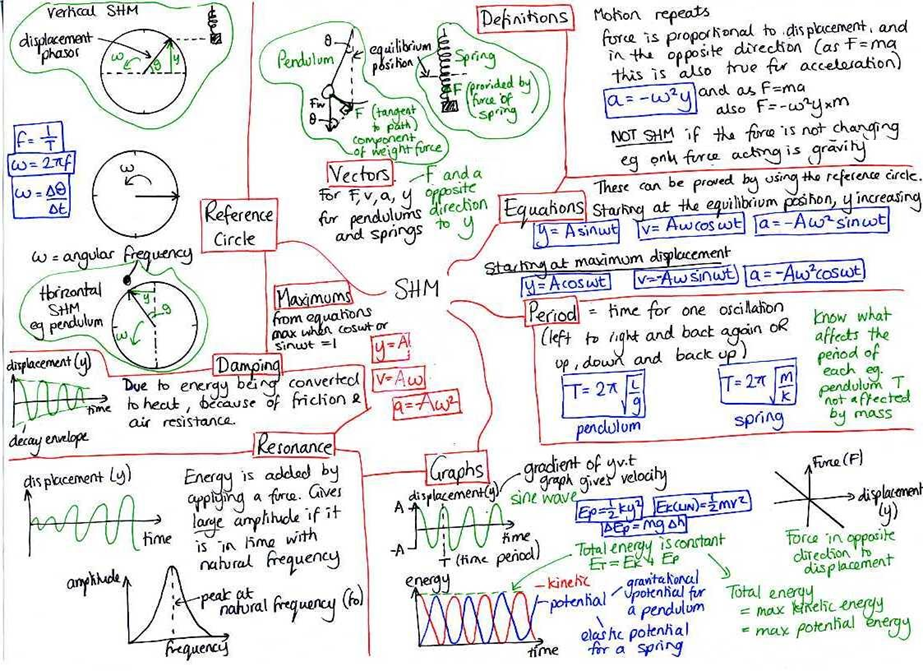 Vertical SHM
displacement
phasor
ω
θ
y
f = 1/T
ω = 2πf
ω = Δθ/Δt
ω
ω = angular frequency
Reference
Circle
Horizontal
SHM
eg pendulum
y
θ
ω
θ
Pendulum
equilibrium
position
Spring
Fw
θ
F (tangent
to path)
component
of weight force
F (provided by
force of
spring)
Vectors
For F, v, a, y
for pendulums
and springs
F and a
opposite
direction
to y
Definitions
Motion repeats
Force is proportional to displacement, and
in the opposite direction (as F=ma
this is also true for acceleration)
a = -ω²y and as F=ma
also F=-ω²y×m
NOT SHM if the force is not changing
eg only force acting is gravity
Equations
These can be proved by using the reference circle.
Starting at the equilibrium position, y increasing
y = A sinωt
v = Aω cosωt
a = -Aω² sinωt
Starting at maximum displacement
y = A cosωt
v = -Aω sinωt
a = -Aω² cosωt
SHM
Maximums
from equations
max when cosωt or
sinωt = 1
y = A
v = Aω
a = -Aω²
Period = time for one oscillation
(left to right and back again OR
up, down and back up)
T = 2π √L/g
pendulum
T = 2π √m/k
spring
Know what
affects the
period of
each eg.
pendulum T
not affected
by mass
Damping
displacement (y)
time
decay envelope
Due to energy being converted
to heat, because of friction &
air resistance.
Resonance
displacement (y)
time
Energy is added by
applying a force. Gives
large amplitude if it
is in time with
natural frequency
amplitude
peak at
natural frequency (fo)
frequency
Graphs
displacement (y)
A
-A
time
T (time period)
gradient of y v.t
graph gives velocity
sine wave
Ep = ½ky²
Ek(LIN) = ½mv²
ΔEp = mgΔh
Total energy is constant
ET = Ek + Ep
energy
time
kinetic
potential
gravitational
potential for
a pendulum
elastic potential
for a spring
Total energy
= max kinetic energy
= max potential energy
Force (F)
displacement
(y)
Force in opposite
direction to
displacement